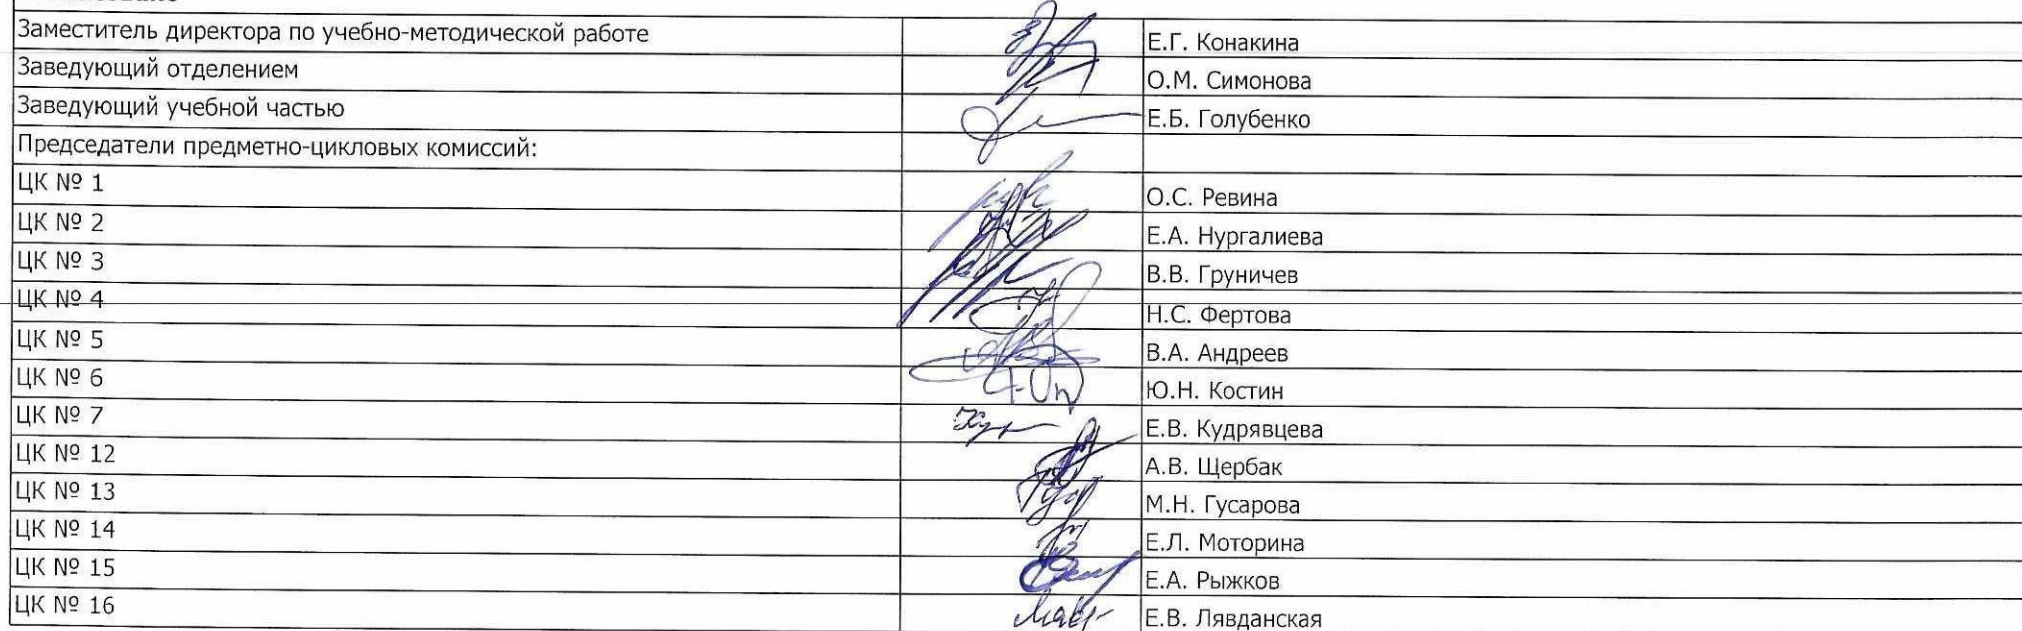 Заместитель директора по учебно-методической работе Е.Г. Конакина
Заведующий отделением О.М. Симонова
Заведующий учебной частью Е.Б. Голубенко
Председатели предметно-цикловых комиссий:
ЦК № 1 О.С. Ревина
ЦК № 2 Е.А. Нургалиева
ЦК № 3 В.В. Груничев
ЦК № 4 Н.С. Фертова
ЦК № 5 В.А. Андреев
ЦК № 6 Ю.Н. Костин
ЦК № 7 Е.В. Кудрявцева
ЦК № 12 А.В. Щербак
ЦК № 13 М.Н. Гусарова
ЦК № 14 Е.Л. Моторина
ЦК № 15 Е.А. Рыжков
ЦК № 16 Е.В. Лявданская